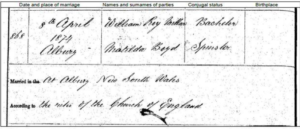 Date and place of marriage Names and surnames of parties Conjugal status Birthplace
868 8th April William Roy Bachelor
1874
Albury Matilda Boyd Spinster
Married in the At Albury New South Wales
According to the rites of the Church of England